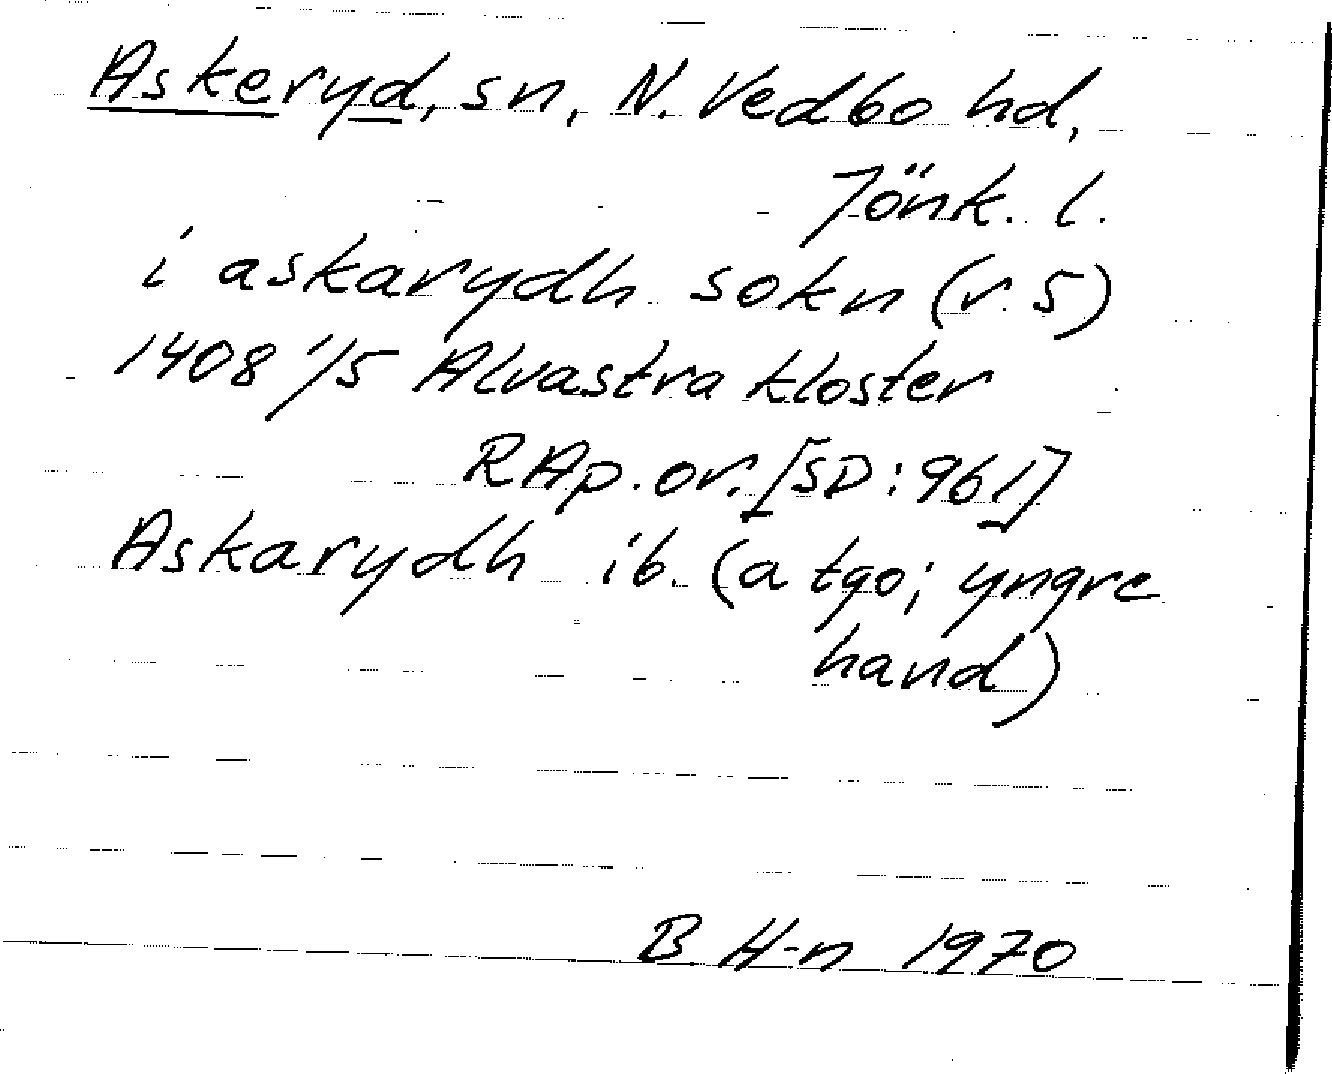 Askeryd, sn, N. Vedbo hd,
Jönk. l.
i askarydh sokn (r. 5)
1408 1/5 Alvastra kloster
RAp. or. [SD: 961]
Askarydh ib. (a tgo; yngre
hand)
B H-n 1970